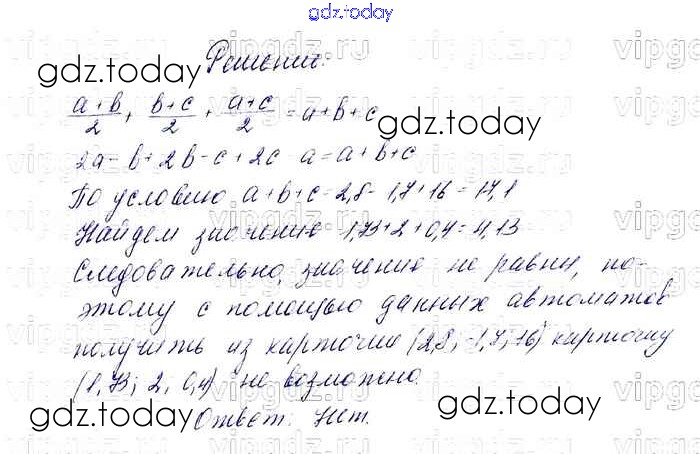 gdz.today
Решение:
a+b/2 + b+c/2 + a+c/2 = a+b+c
2a-b+2b-c+2c-a=a+b+c
По условию a+b+c=2,8-1,7+16=17,1
Найдем значение 1,73+2+0,4=4,13
Следовательно, значение не равны, по-
этому с помощью данных автоматов
получить из карточки (2,8; -1,7; 16) карточку
(1,73; 2; 0,4) не возможно.
Ответ: Нет.
gdz.today
gdz.today
gdz.today
gdz.today
vipgdz.ru